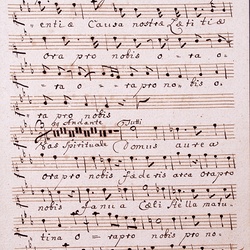 entiæ Causa nostræ Lætitiæ
ora pro nobis o - ra o -
ra o - ra pro nobis o -
ra pro nobis
Andante Tutti
Vas Spirituale Domus aurea
ora pro nobis fæderis arca ora pro
nobis Janua Cæli stella matu
tina o - ra pro nobis pro no -